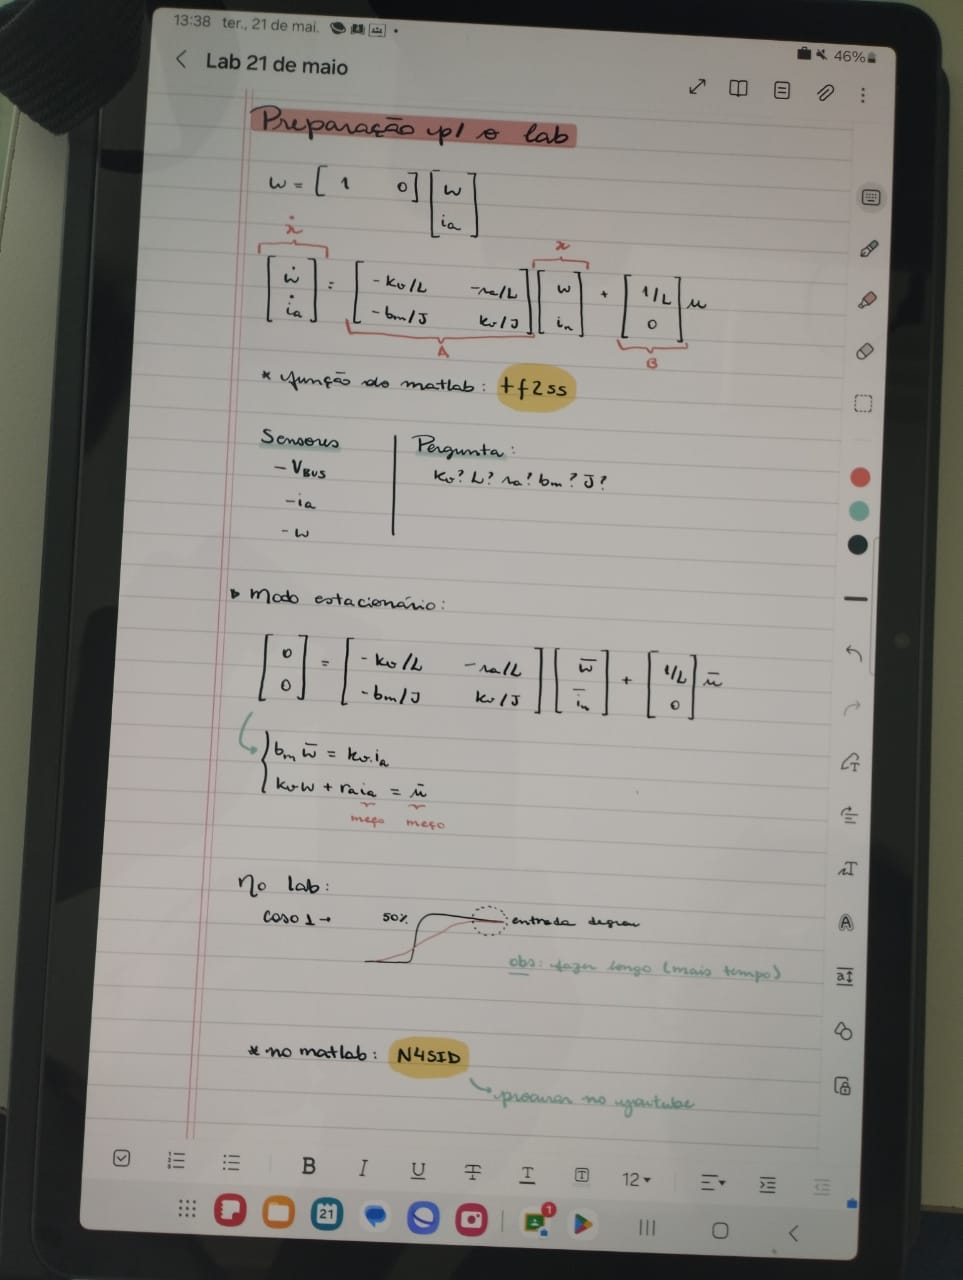 13:38 ter., 21 de mai.
46%
Lab 21 de maio
Preparação p/ o lab
w = [ 1 0 ] [ w
ia ]
ẋ
x
[ ẇ = [ -kv/L -ra/L ] [ w + [ 1/L ] u
i̇a ] -bm/J kv/J ia ] 0
A
B
* função do matlab: tf2ss
Sensores
- VBUS
- ia
- w
Pergunta:
kv? L? ra? bm? J?
Modo estacionário:
[ 0 = [ -kv/L -ra/L ] [ w̅ + [ 1/L ] u̅
0 ] -bm/J kv/J i̅a ] 0
bm w̅ = kv.ia
kvw + raia = u̅
meço meço
No lab:
caso 1 → 50% entrada degrau
obs: fazer longo (mais tempo)
* no matlab: N4SID
procurar no youtube
B I U T T T 12
21
1